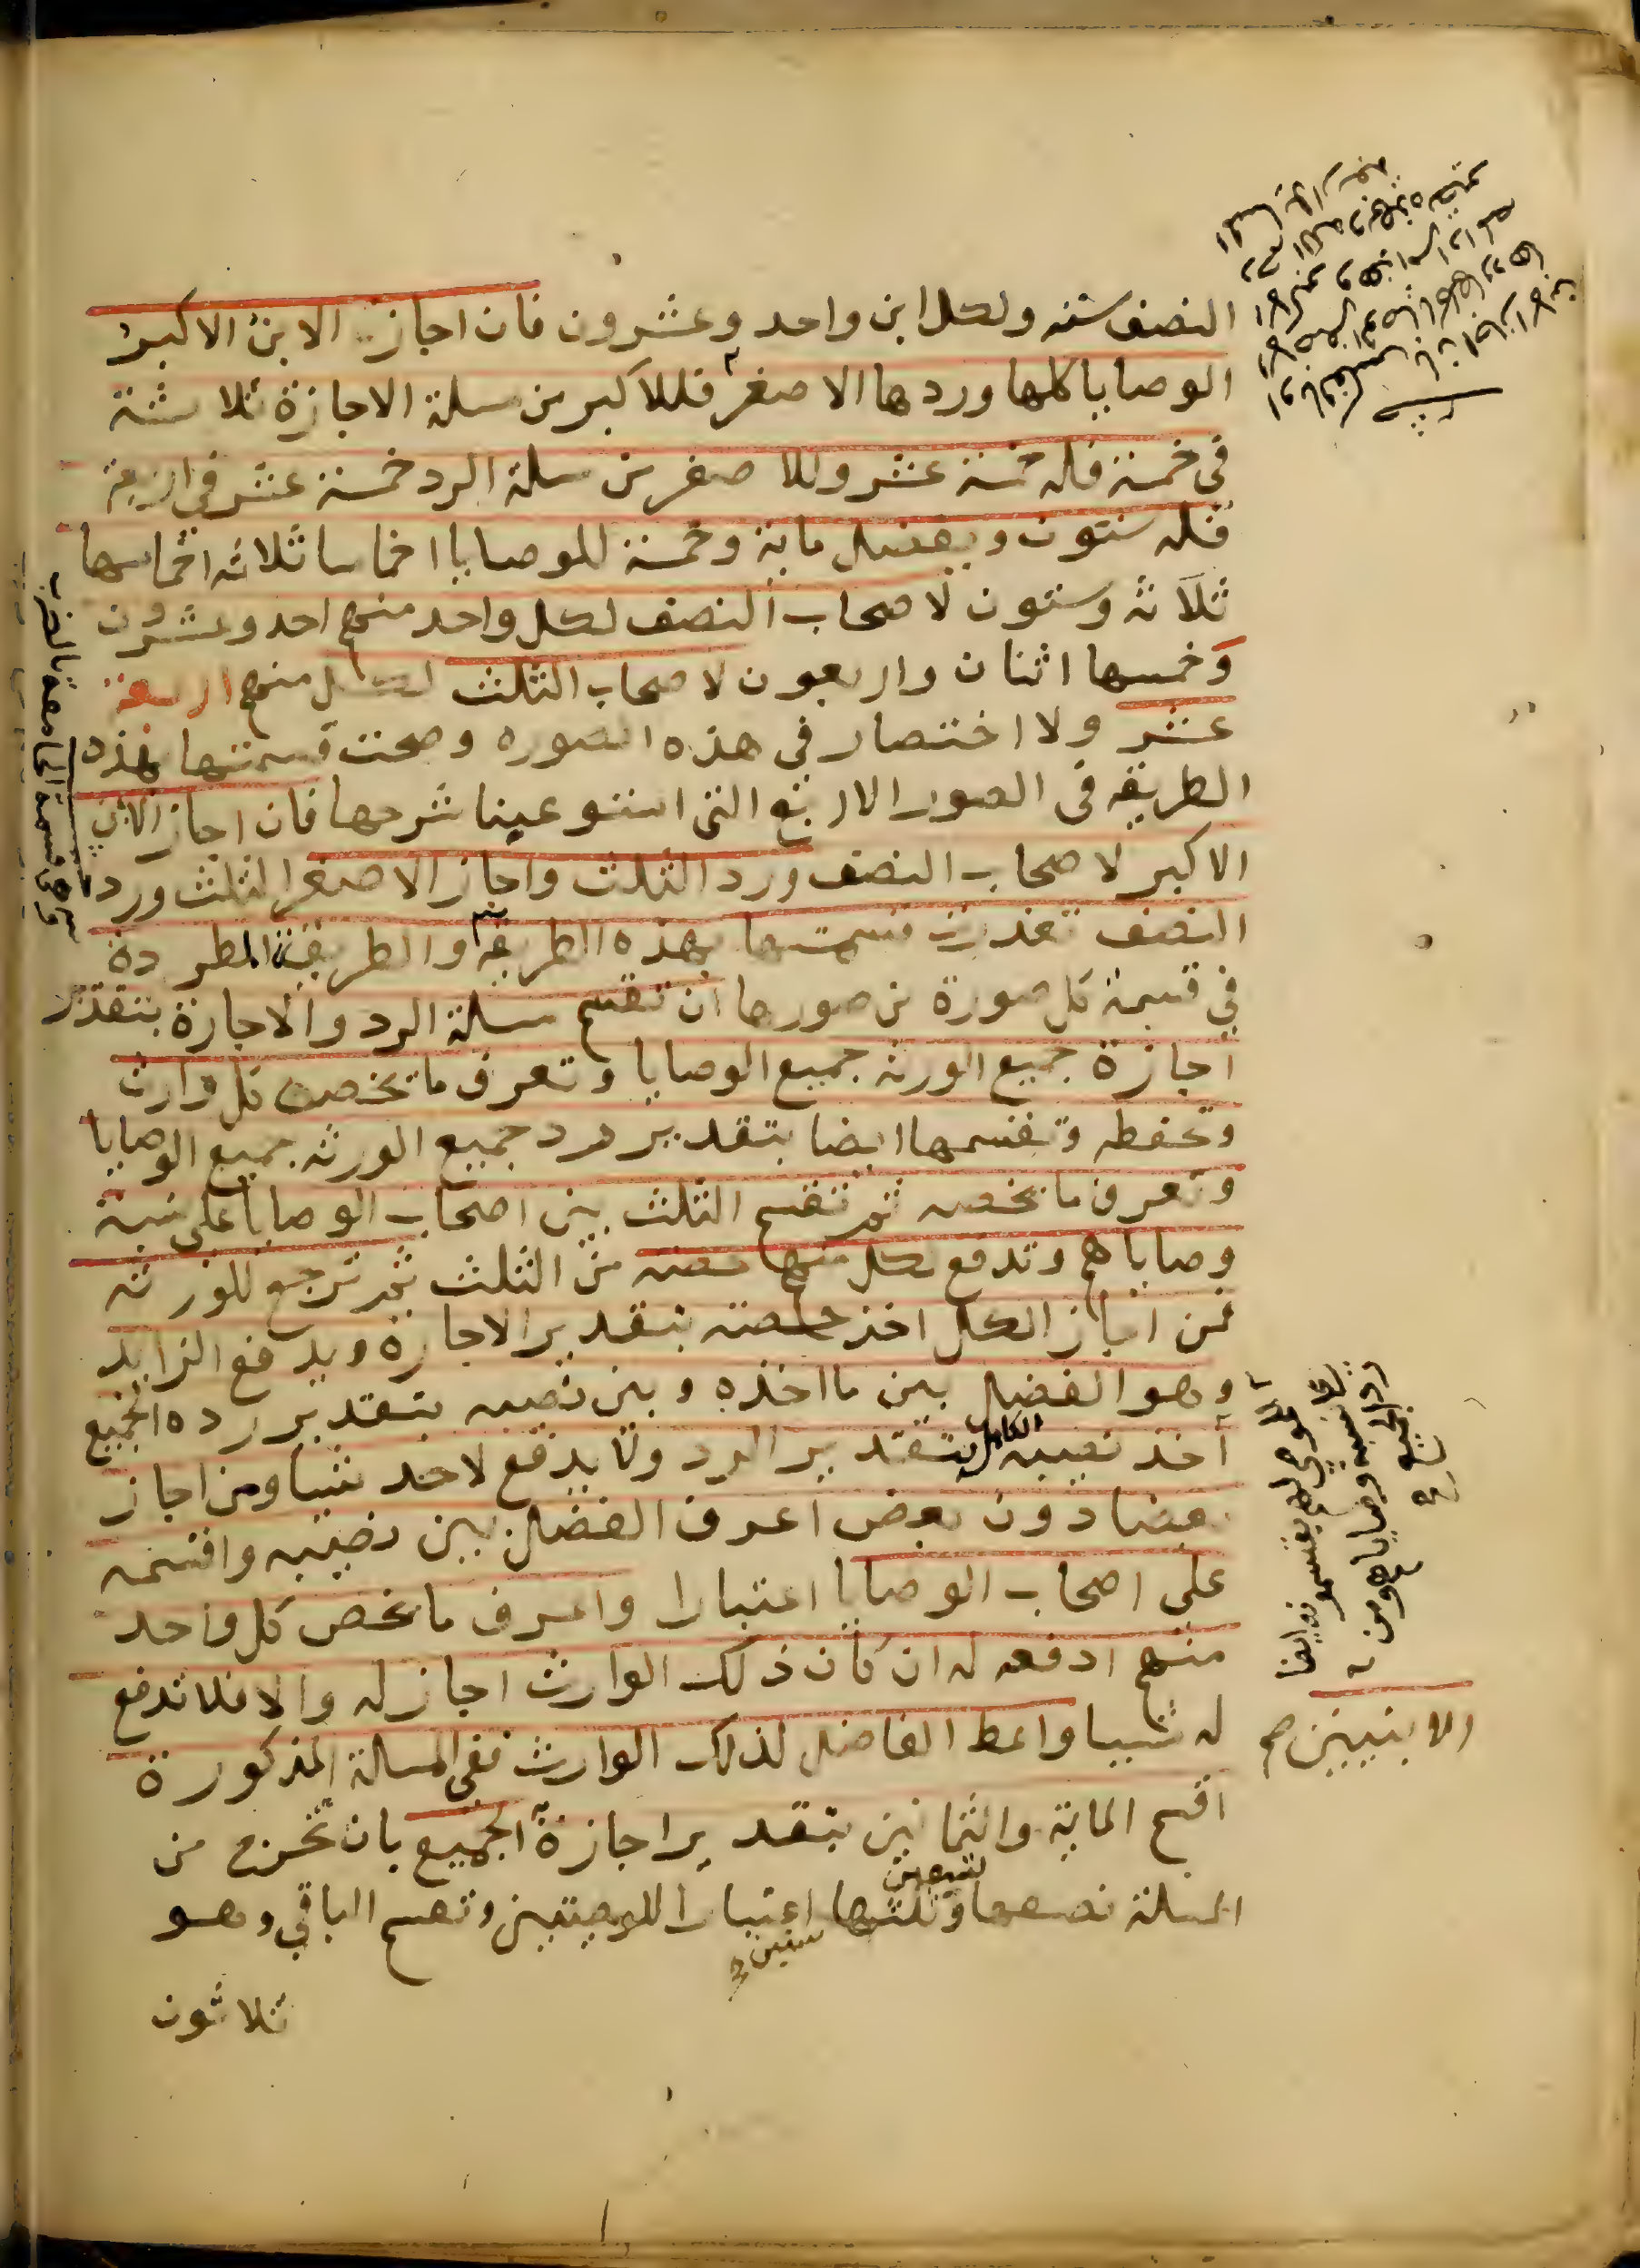 النصف ستة ولكل ابن واحد وعشرون فان اجاز الابن الاكبر
الوصايا كلها وردها الاصغر فللاكبر من مسلة الاجازة ثلاثة
في خمسة فله خمسة عشر وللاصغر من مسلة الرد خمسة عشر في اربعة
فله ستون ويفضل ماية وخمسة للموصايا اخماسا ثلاثة اخماسها
ثلاثه وستون لاصحاب النصف لكل واحد منهم احد وعشرون
وخمسها اثنان واربعون لاصحاب الثلث لكل منهم اربعة
عشر ولا اختصار في هذه الصوره وصحت قسمتها بهذه
الطريقه في الصور الاربع التي استوعبنا شرحها فان اجاز الابن
الاكبر لاصحاب النصف ورد الثلث واجاز الاصغر الثلث ورد
النصف تعذرت قسمتها بهذه الطريقه والطريقة المطردة
في قسمة كل صورة من صورها ان تقسم مسلة الرد والاجازة بتقدير
اجازة جميع الورثه جميع الوصايا وتعرف ما يخص كل وارث
وتحفظه وتقسمها ايضا بتقدير رد جميع الورثه جميع الوصايا
وتعرف ما يخصه ثم تقسم الثلث بين اصحاب الوصايا على نسبة
وصاياهم وتدفع لكل منهم حصته من الثلث ثم ترجع للورثه
فمن اجاز الكل اخذ حصته بتقدير الاجازة ويدفع الزايد
وهو الفضل بين ما اخذه وبين نصيبه بتقدير رده الجميع
اخذ نصيبه الكامل بتقدير الرد ولا يدفع لاحد شيا ومن اجاز
بعضا دون بعض اعرف الفضل بين نصيبيه واقسمه
على اصحاب الوصايا اعتبارا واعرف ما يخص كل واحد
منهم ادفعه له ان كان ذلك الوارث اجاز له والا فلا تدفع
له شييا واعط الفاضل لذلك الوارث ففي المسالة المذكورة
اقسم الماية والثمانين بتقدير اجازة الجميع بان تخرج من
المسلة نصفها تسعين وثلثها ستين اعتبارا للوصيتين وتقسم الباقي وهو
ثلاثون
وهي قسمة المحاصصة بالضرب
للموصى لهم يقتسمونه ايضا
على نسبة وصاياهم ومن
رد الجميع صح
الابنين صح